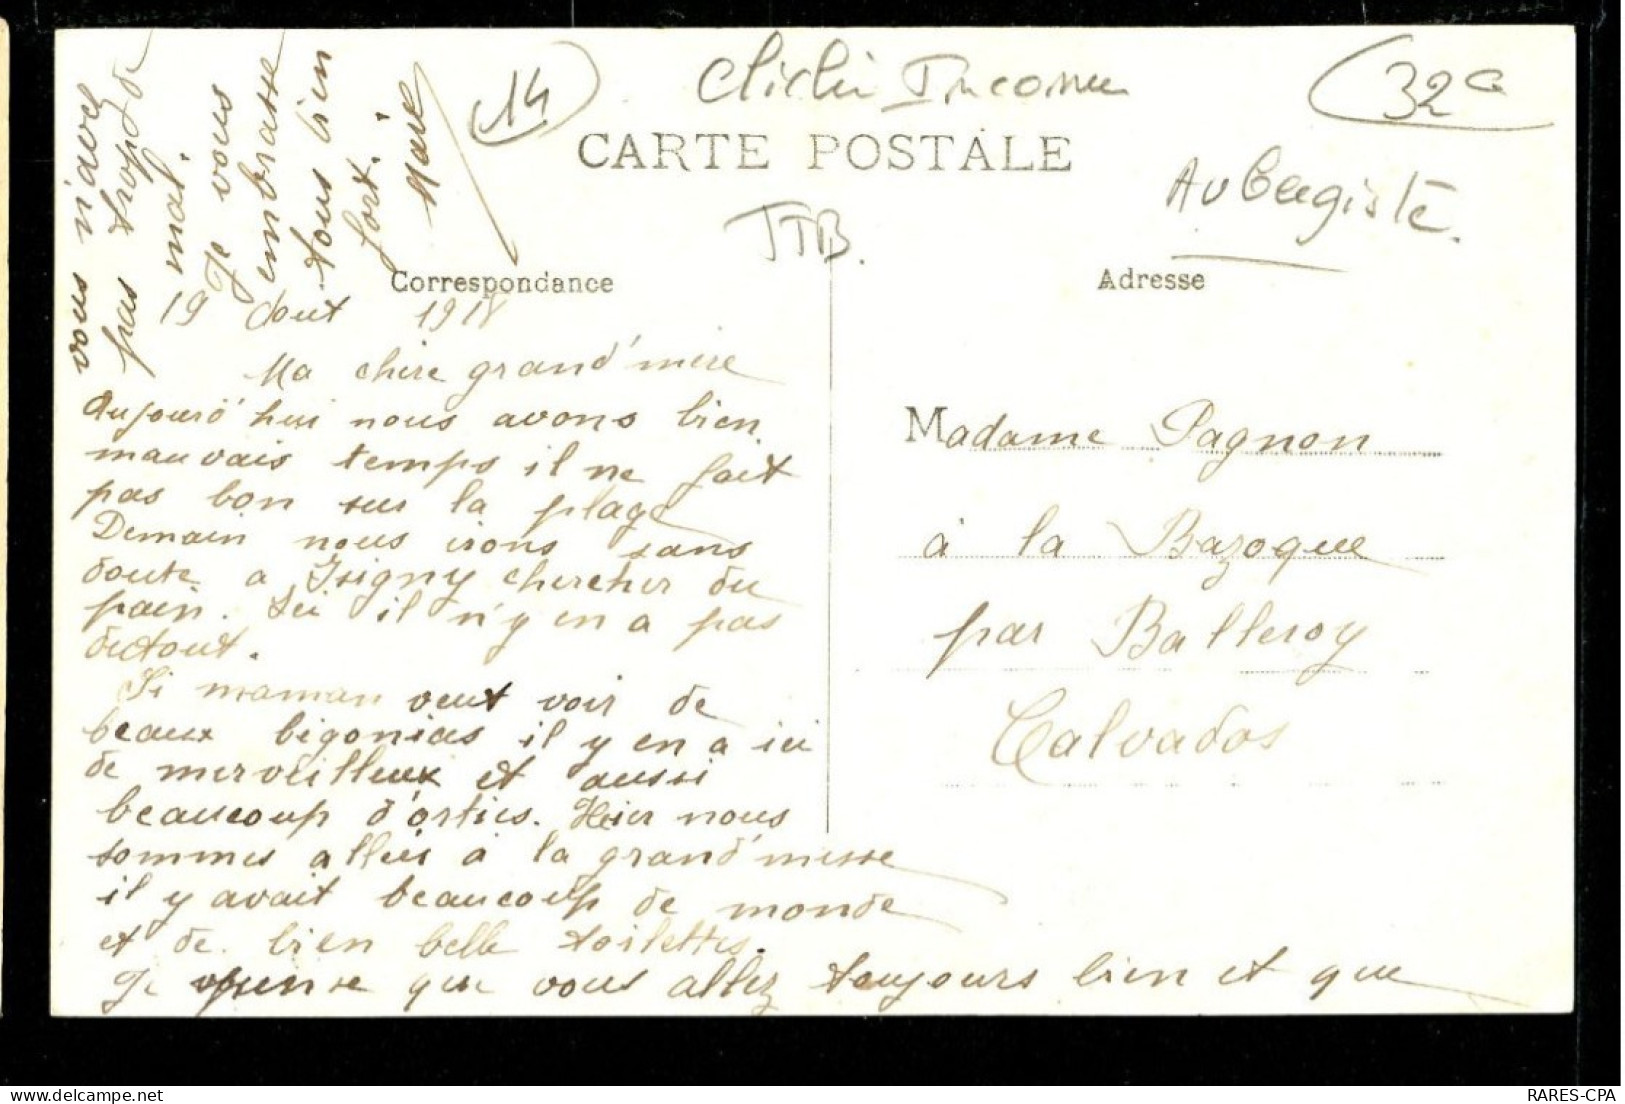 14
Cliché Inconnu
32 €
CARTE POSTALE
Aubergiste.
TTB.
Correspondance
Adresse
19 Aout 1918
Ma chère grand'mère
Aujourd'hui nous avons bien
mauvais temps il ne fait
pas bon sur la plage
Demain nous irons sans
doute a Isigny chercher du
pain. Ici il n'y en a pas
dutout.
Si maman veut voir de
beaux bigonias il y en a ici
de merveilleux et aussi
beaucoup d'orties. Hier nous
sommes allées à la grand'messe
il y avait beaucoup de monde
et de bien belle toilettes.
Je pense que vous allez toujours bien et que
vous n'avez
pas trop de
mal.
Je vous
embrasse
tous bien
fort.
Marie
Madame Pagnon
à la Bazoque
par Balleroy
Calvados
www.delcampe.net
RARES-CPA